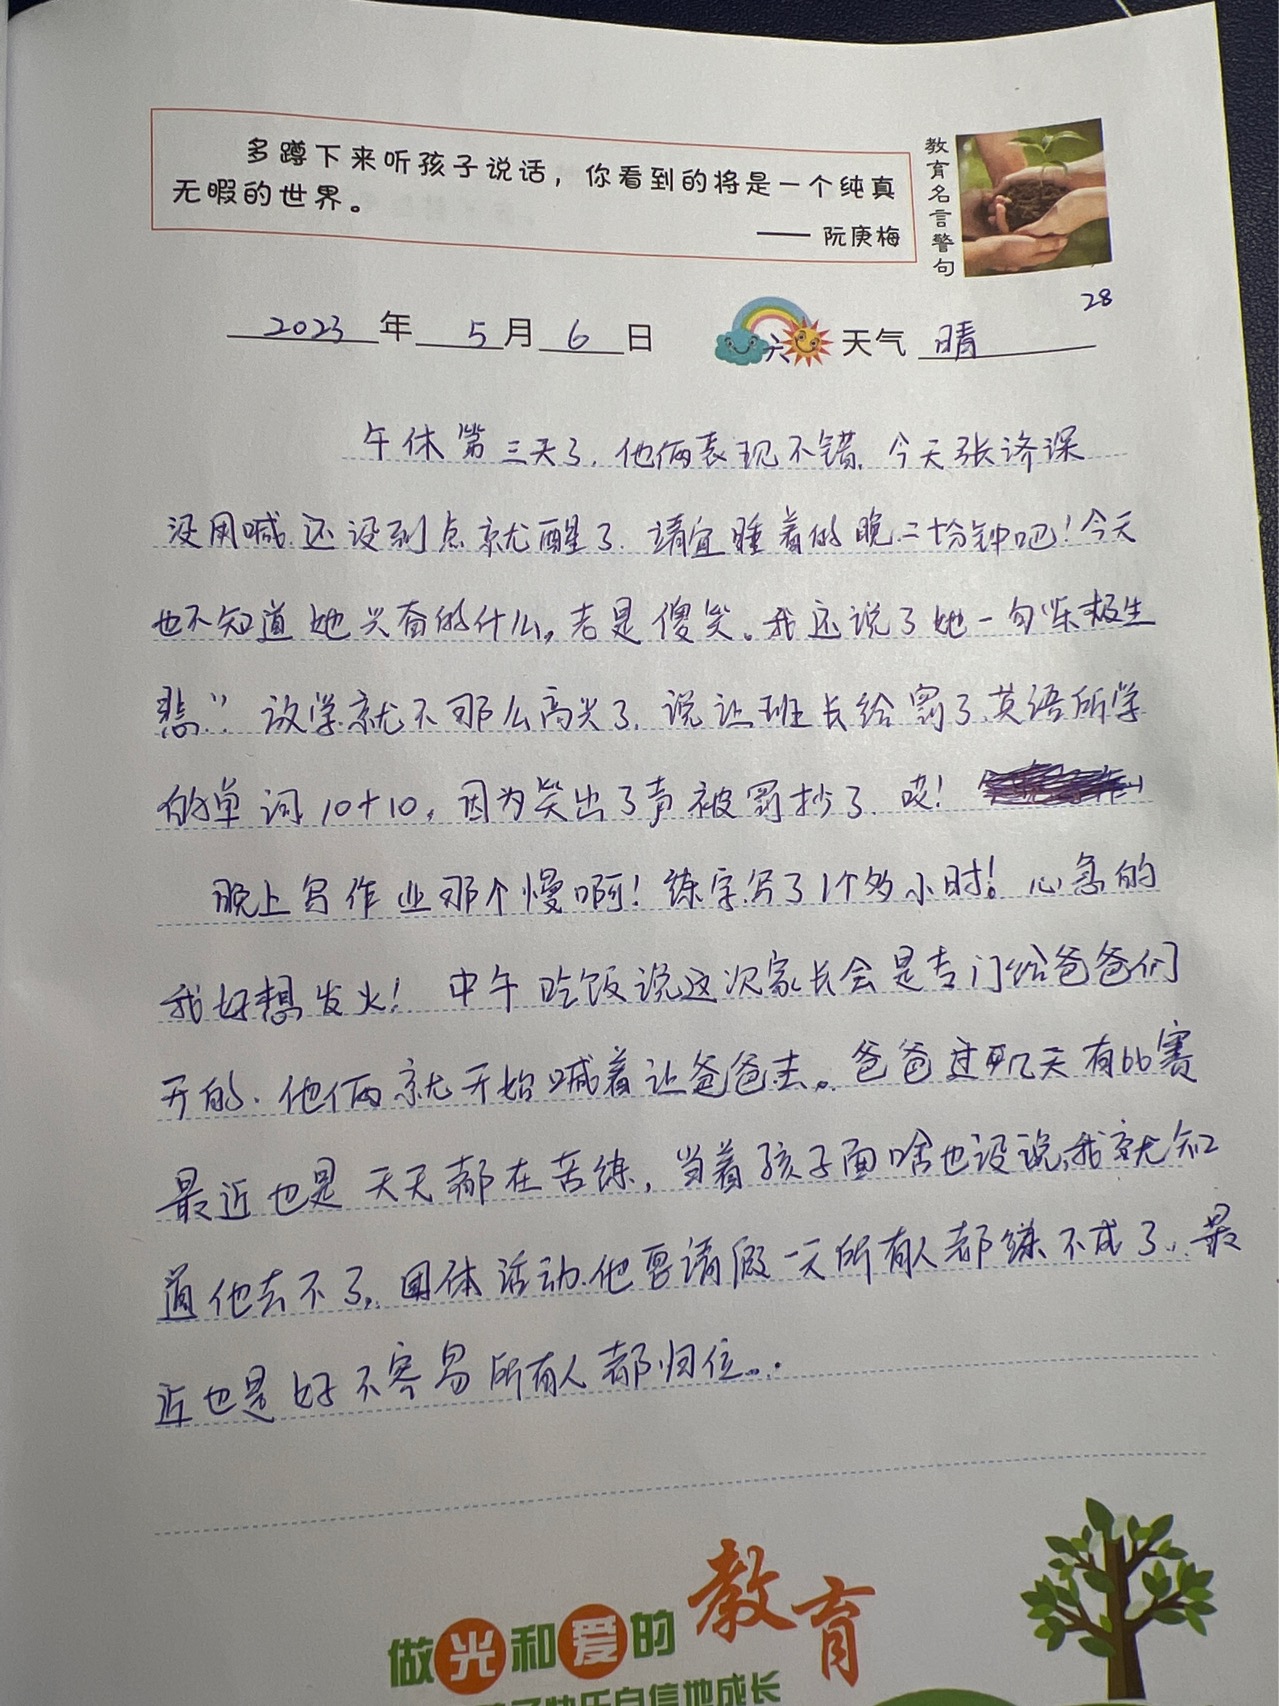 多蹲下来听孩子说话，你看到的将是一个纯真
无暇的世界。
—— 阮庚梅
教育名言警句
28
2023年 5月6日 六 天气 晴
午休第三天了.他俩表现不错.今天张济深
没用喊.还没到点就醒了.靖宜睡着的晚.二十分钟吧！今天
也不知道她兴奋的什么,老是傻笑。我还说了她一句“乐极生
悲” 放学就不那么高兴了.说让班长给罚了.英语所学
的单词10+10,因为笑出了声被罚抄了.哎！
晚上写作业那个慢啊！练字写了1个多小时！心急的
我好想发火！中午吃饭说这次家长会是专门给爸爸们
开的.他俩就开始喊着让爸爸去。爸爸过两几天有bb赛
最近也是天天都在苦练,当着孩子面啥也没说,我就知
道他去不了,团体活动.他要请假一天所有人都练不成了.最
近也是好不容易所有人都归位...
做光和爱的教育
快乐自信地成长